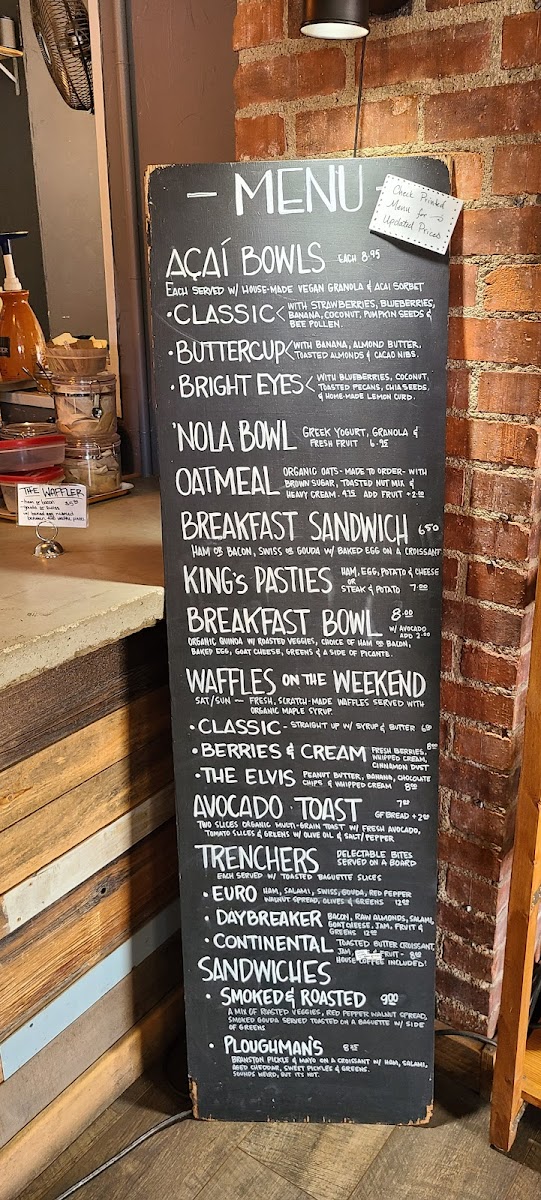 — MENU -
Check Printed
Menu for →
Updated Prices
AÇAÍ BOWLS EACH 8.95
EACH SERVED W/ HOUSE-MADE VEGAN GRANOLA & ACAI SORBET
• CLASSIC < WITH STRAWBERRIES, BLUEBERRIES,
BANANA, COCONUT, PUMPKIN SEEDS &
BEE POLLEN.
• BUTTERCUP < WITH BANANA, ALMOND BUTTER,
TOASTED ALMONDS & CACAO NIBS.
• BRIGHT EYES < WITH BLUEBERRIES, COCONUT,
TOASTED PECANS, CHIA SEEDS,
& HOME-MADE LEMON CURD.
'NOLA BOWL GREEK YOGURT, GRANOLA &
FRESH FRUIT 6.95
OATMEAL ORGANIC OATS - MADE TO ORDER - WITH
BROWN SUGAR, TOASTED NUT MIX &
HEAVY CREAM. 4.75 ADD FRUIT +2.00
BREAKFAST SANDWICH 6.50
HAM OR BACON, SWISS OR GOUDA W/ BAKED EGG ON A CROISSANT
KING'S PASTIES HAM, EGG, POTATO & CHEESE
OR
STEAK & POTATO 7.00
BREAKFAST BOWL 8.00
W/ AVOCADO
ADD 2.00
ORGANIC QUINOA W/ ROASTED VEGGIES, CHOICE OF HAM OR BACON,
BAKED EGG, GOAT CHEESE, GREENS & A SIDE OF PICANTE.
WAFFLES ON THE WEEKEND
SAT/SUN — FRESH, SCRATCH-MADE WAFFLES SERVED WITH
ORGANIC MAPLE SYRUP.
• CLASSIC - STRAIGHT UP W/ SYRUP & BUTTER
• BERRIES & CREAM FRESH BERRIES, 8.00
WHIPPED CREAM,
CINNAMON DUST
• THE ELVIS PEANUT BUTTER, BANANA, CHOCOLATE
CHIPS & WHIPPED CREAM 8.00
AVOCADO TOAST 7.00
GF BREAD +2.00
TWO SLICES ORGANIC MULTI-GRAIN TOAST W/ FRESH AVOCADO,
TOMATO SLICES & GREENS W/ OLIVE OIL & SALT/PEPPER
TRENCHERS DELECTABLE BITES
SERVED ON A BOARD
EACH SERVED W/ TOASTED BAGUETTE SLICES
• EURO HAM, SALAMI, SWISS, GOUDA, RED PEPPER
WALNUT SPREAD, OLIVES & GREENS 12.00
• DAYBREAKER BACON, RAW ALMONDS, SALAMI,
GOAT CHEESE, JAM, FRUIT &
GREENS 12.00
• CONTINENTAL TOASTED BUTTER CROISSANT,
JAM, FRUIT - 8.00
HOUSE COFFEE INCLUDED!
SANDWICHES
• SMOKED & ROASTED 9.00
A MIX OF ROASTED VEGGIES, RED PEPPER WALNUT SPREAD,
SMOKED GOUDA SERVED TOASTED ON A BAGUETTE W/ SIDE
OF GREENS
• PLOUGHMAN'S
BRANSTON PICKLE & MAYO ON A CROISSANT W/ HAM, SALAMI,
AGED CHEDDAR, SWEET PICKLES & GREENS.
SOUNDS WEIRD, BUT IT'S NOT.
THE WAFFLER
- ham or bacon
- gouda or swiss